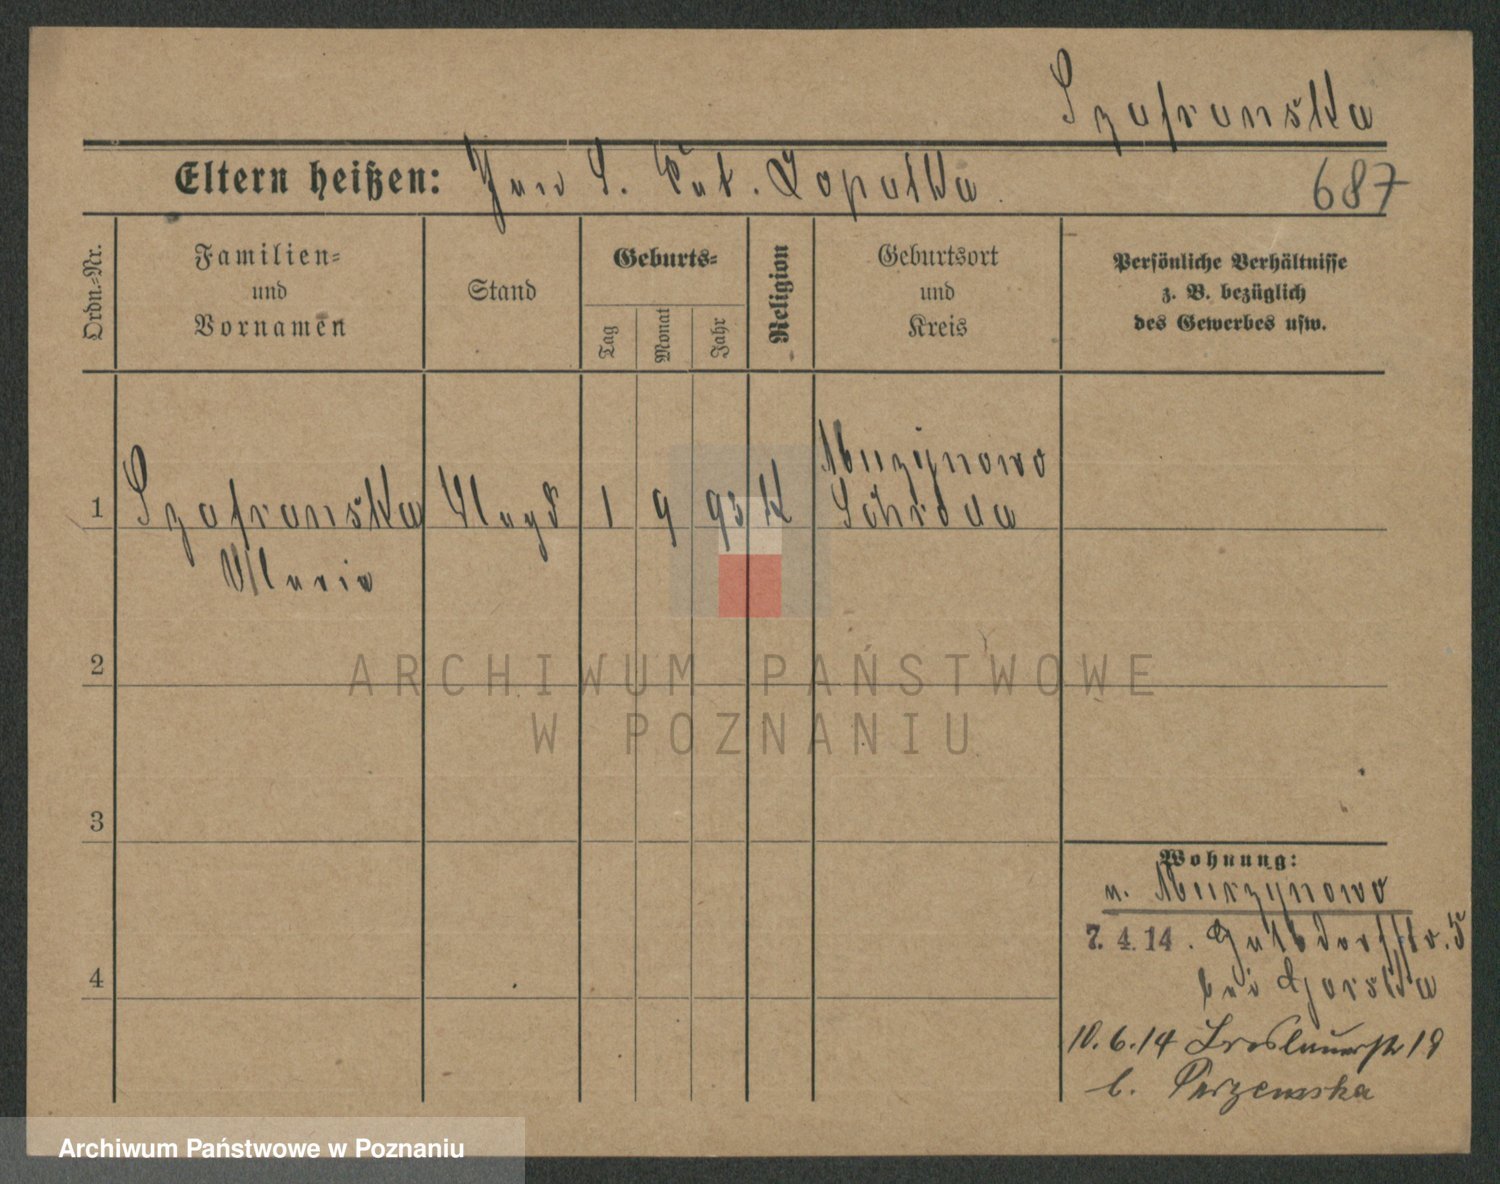 Szafranska
Eltern heißen: Jan S. Kat. Lopatka
687
Ordn.-Nr.
Familien-
und
Vornamen
Stand
Geburts-
Tag
Monat
Jahr
Religion
Geburtsort
und
Kreis
Persönliche Verhältnisse
z. B. bezüglich
des Gewerbes usw.
1 Szafranska Magd 1 9 93 K Murzynowo
Schroda
Maria
2
3
4
Wohnung:
v. Murzynowo
7. 4. 14.
bei Gorska
10.6.14 Breslauerstr 18
b.
ARCHIWUM PAŃSTWOWE
W POZNANIU
Archiwum Państwowe w Poznaniu